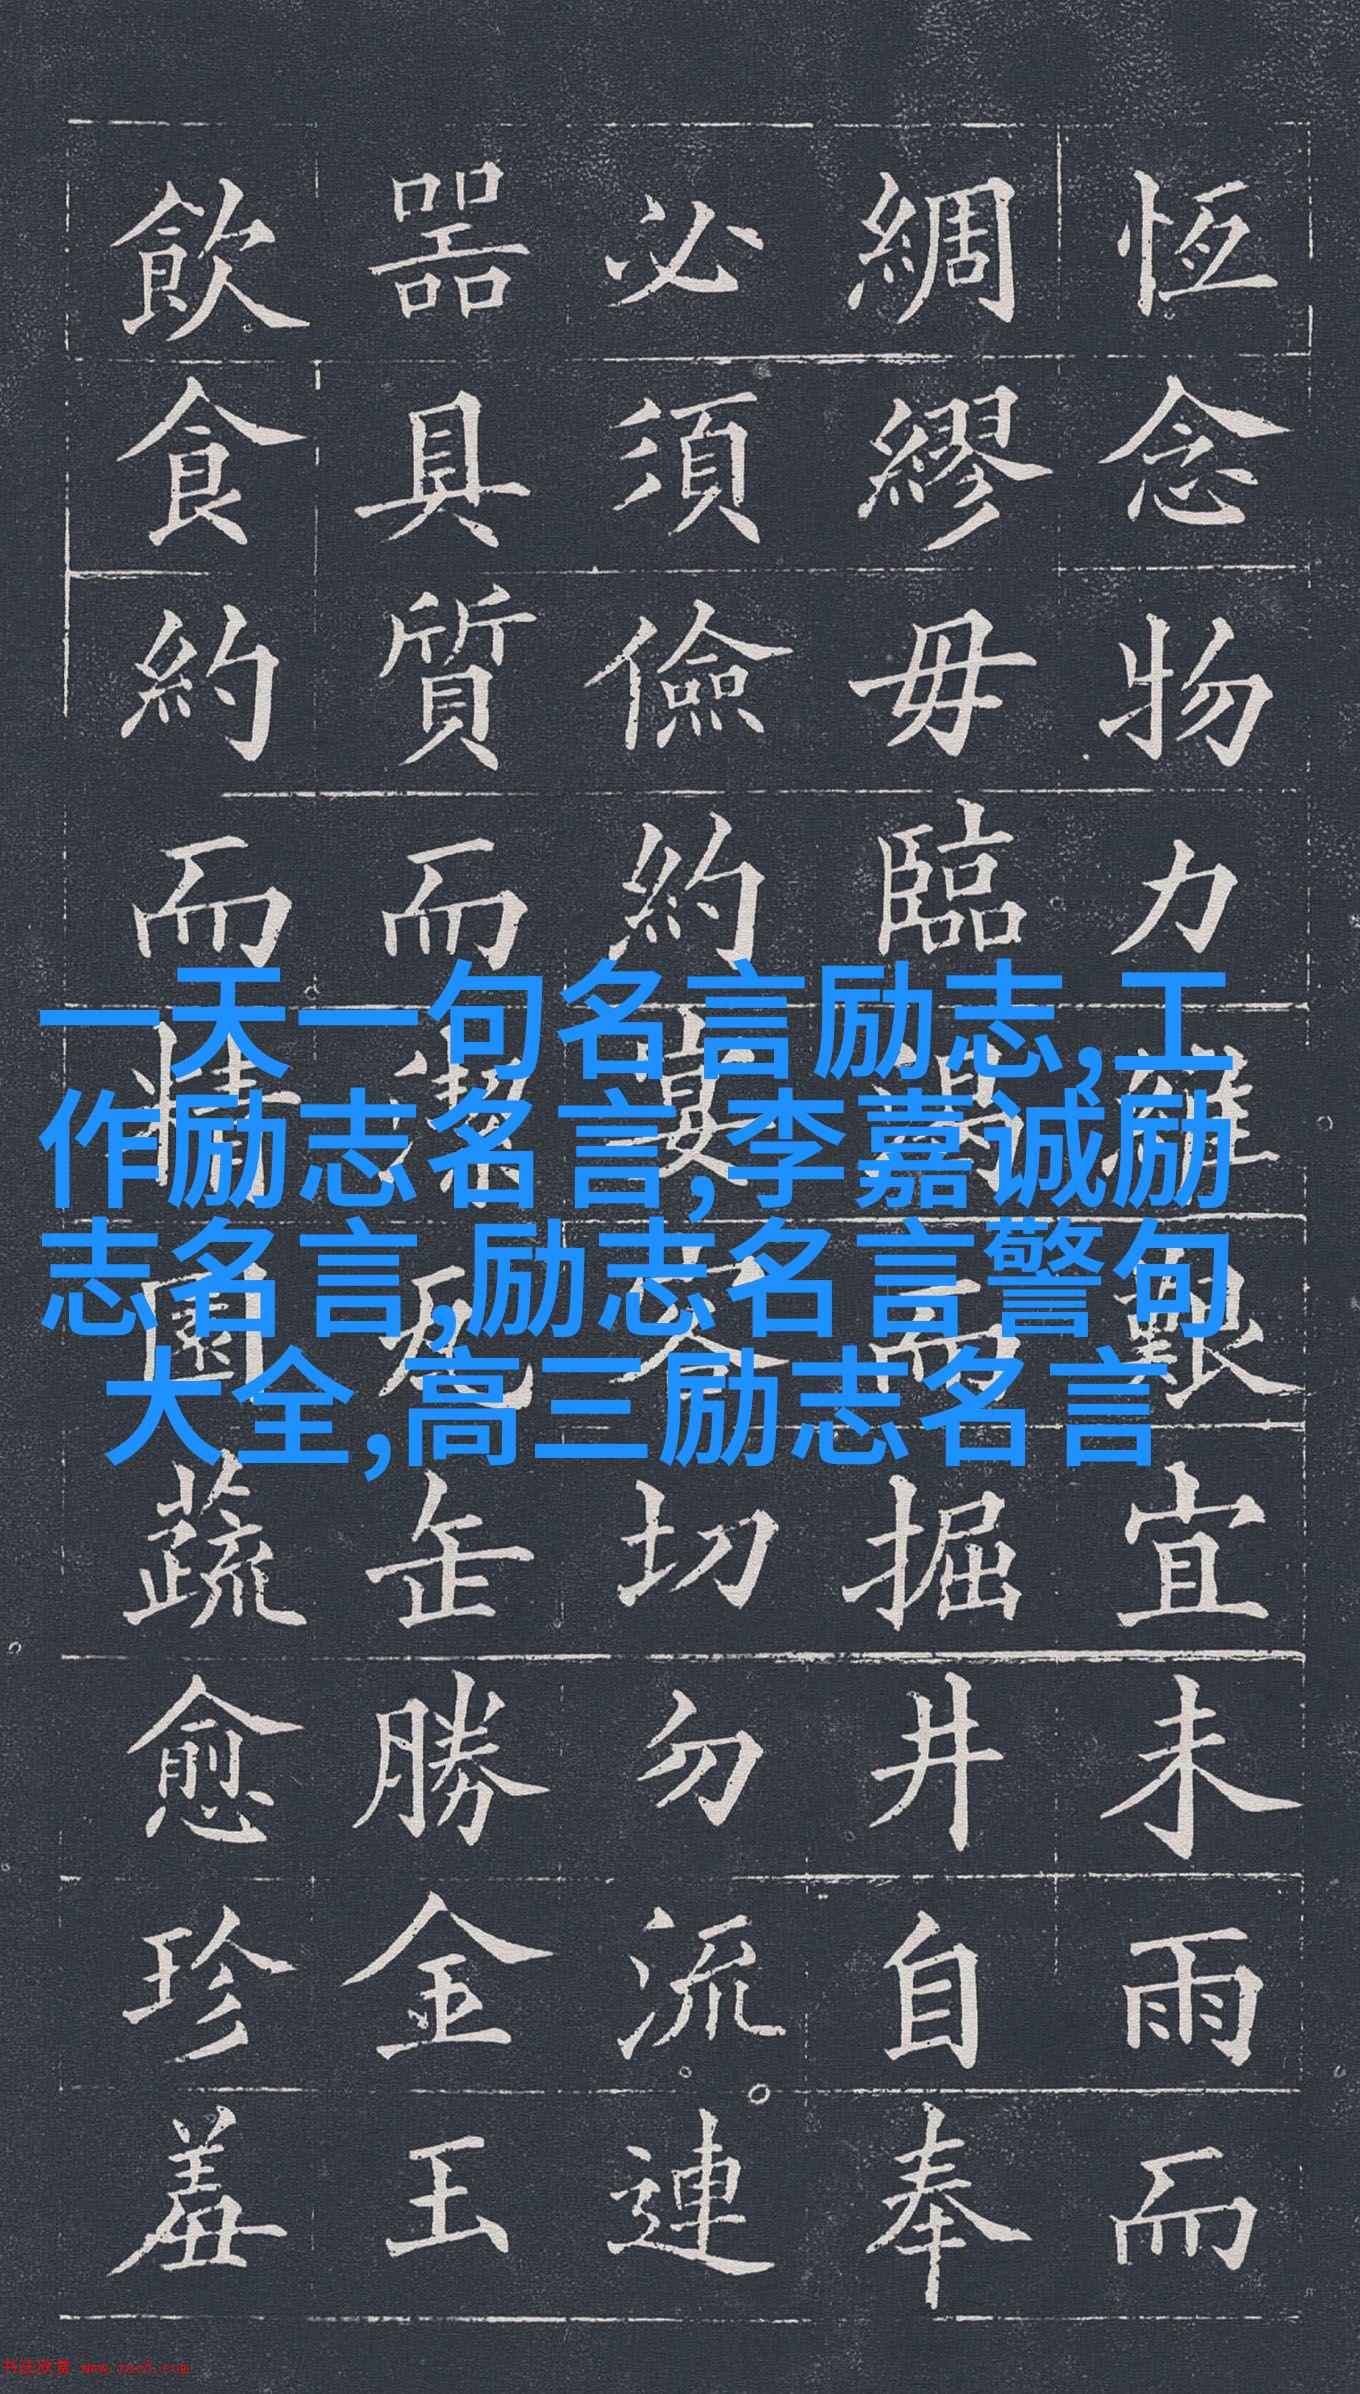 恆念物力維艱宜未雨而
綢繆毋臨渴而掘井自奉
必須儉約宴客切勿流連
噐具質而潔瓦缶勝金玉
飲食約而精園蔬愈珍羞
一天一句名言励志,工
作励志名言,李嘉诚励
志名言,励志名言警句
大全,高三励志名言
书法欣赏 www.yac8.com